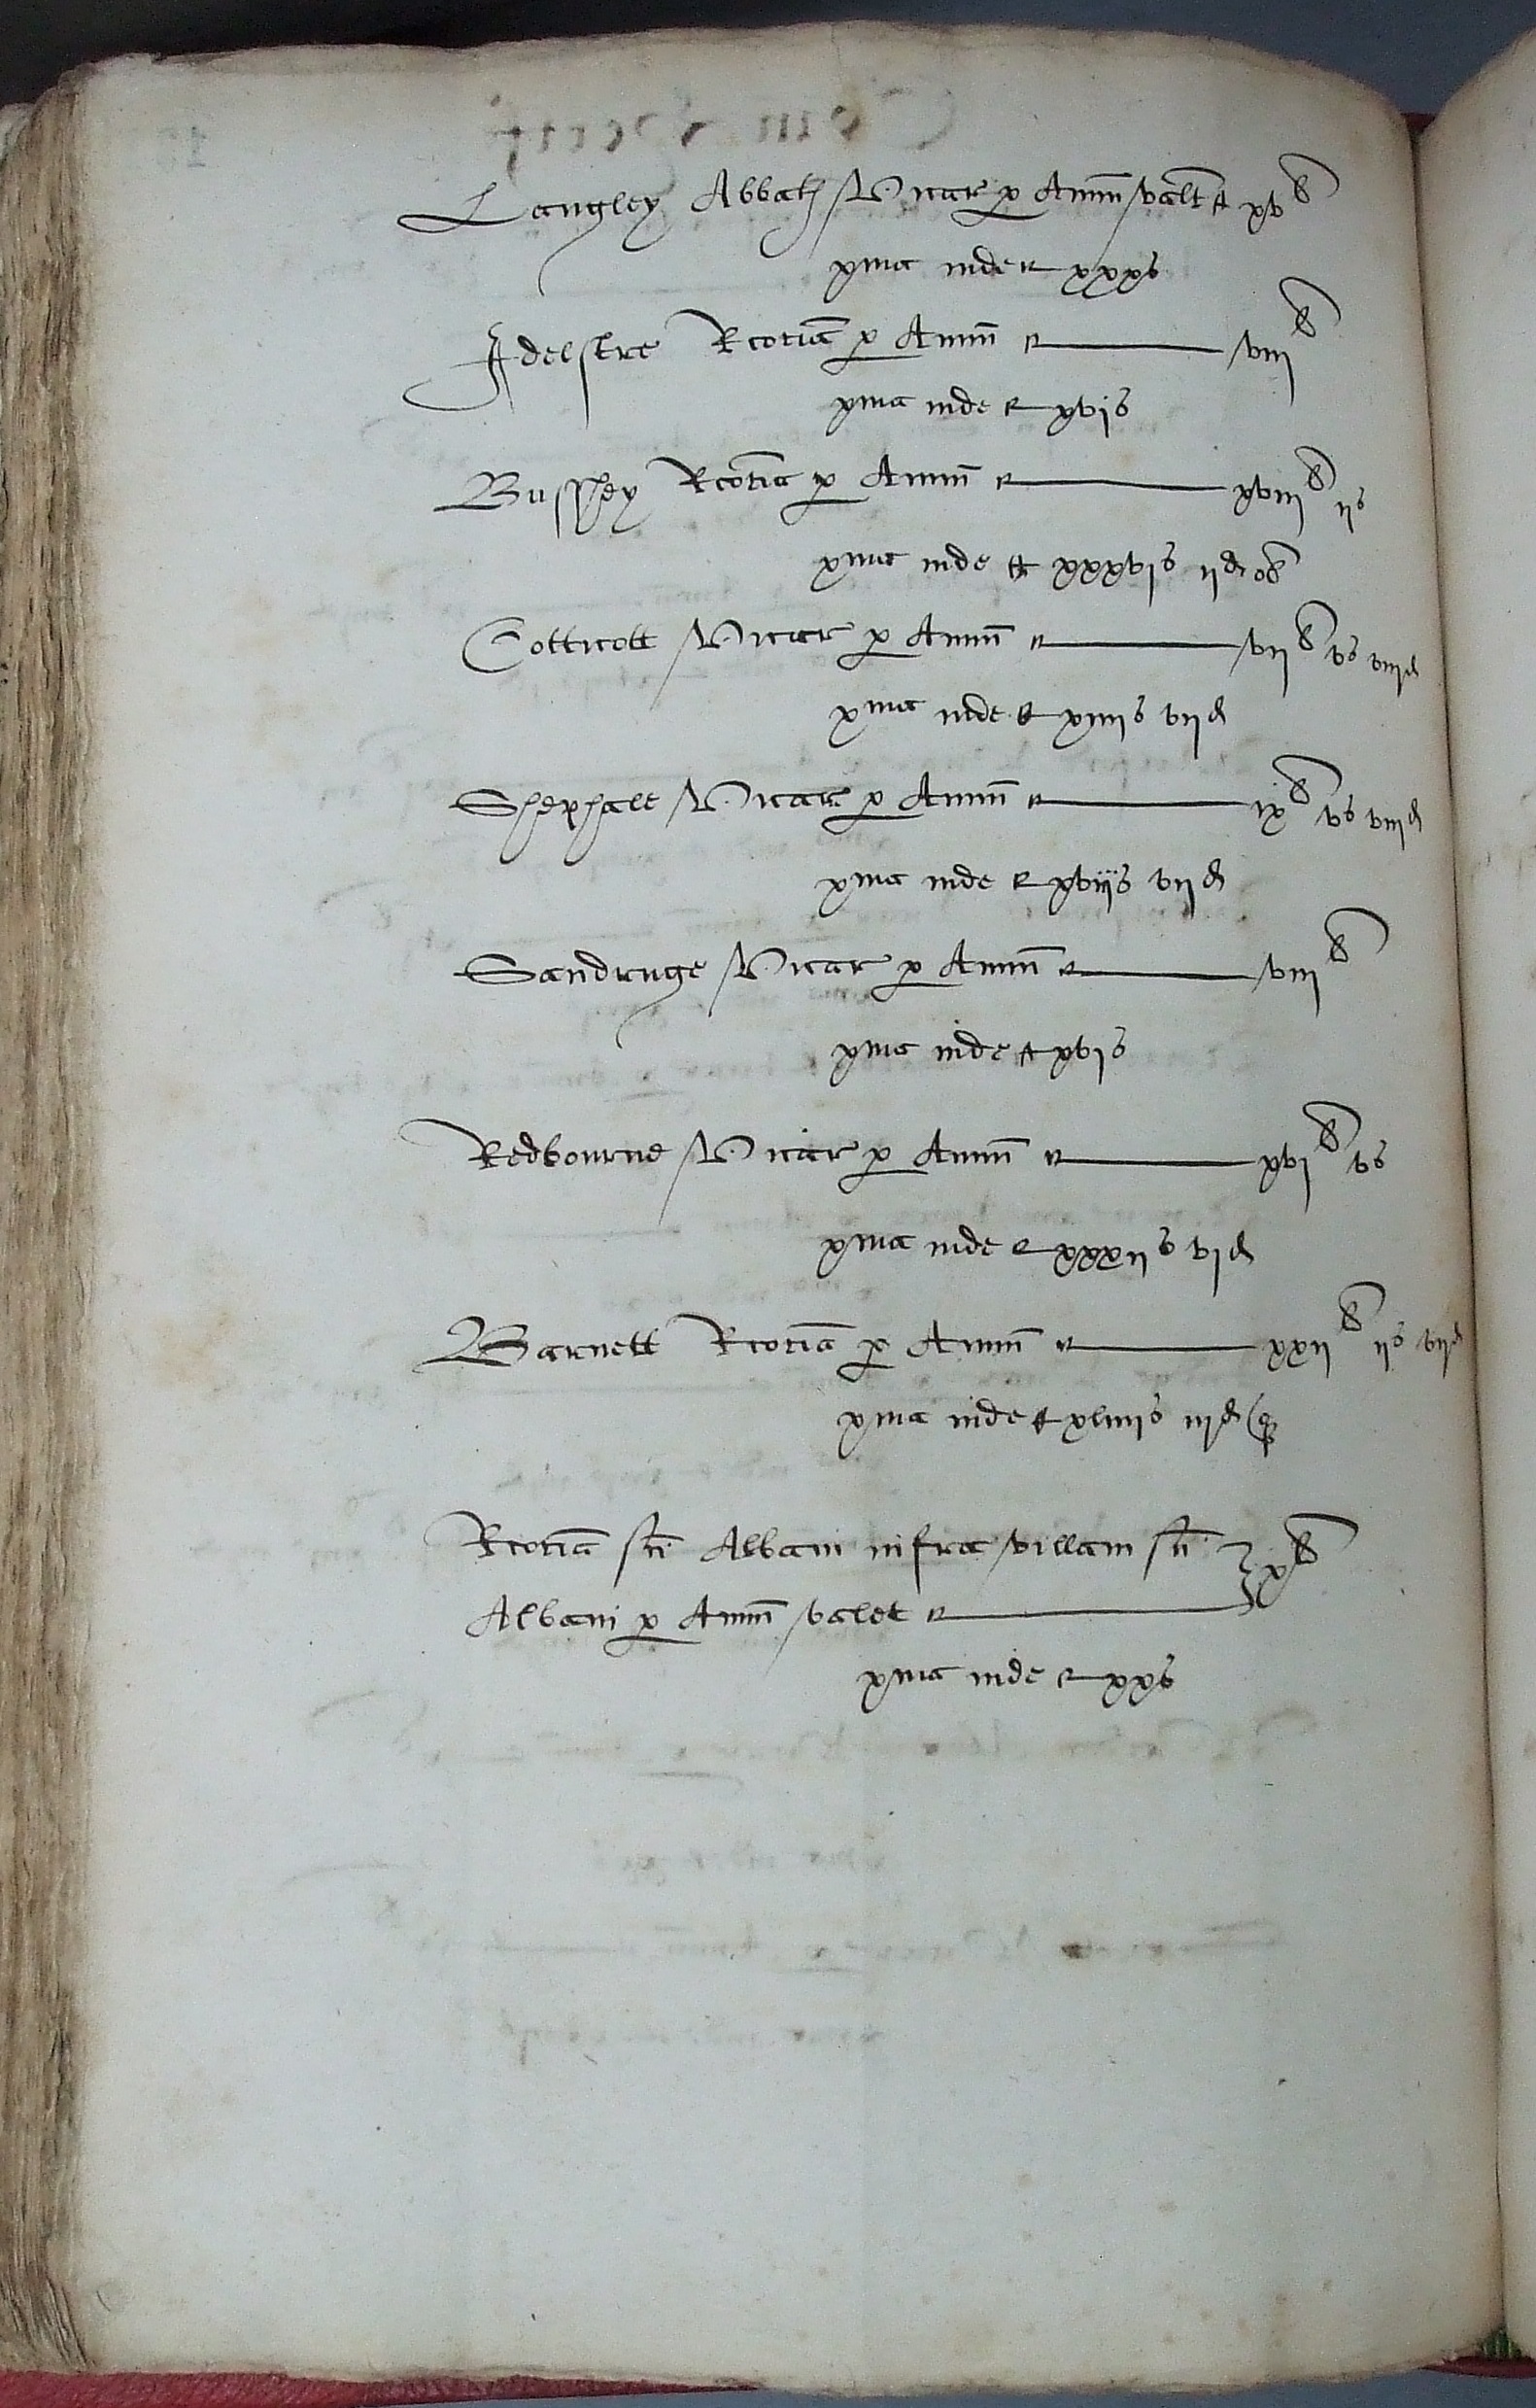 Langley Abbat Vicar p Annm valt xv li
xma inde xxxs
Idelstre Rcoria p Annm viii li
xma inde xvis
Busshey Rcoria p Annm xviii li iis
xma inde xxxvis iid ob
Cotticott Vicar p Annm vii li vs viiid
xma inde xiiiis viid
Shephale Vicar p Annm ix li vs viiid
xma inde xviiis viid
Sandruge Vicar p Annm viii li
xma inde xvis
Redbourne Vicar p Annm xvi li vs
xma inde xxxiis vid
Barnett Rcoria p Annm xxii li iis viid
xma inde xliiiis iiid q
Rcoria sci Albani infra villam sci x li
Albani p Annm valet
xma inde xxs